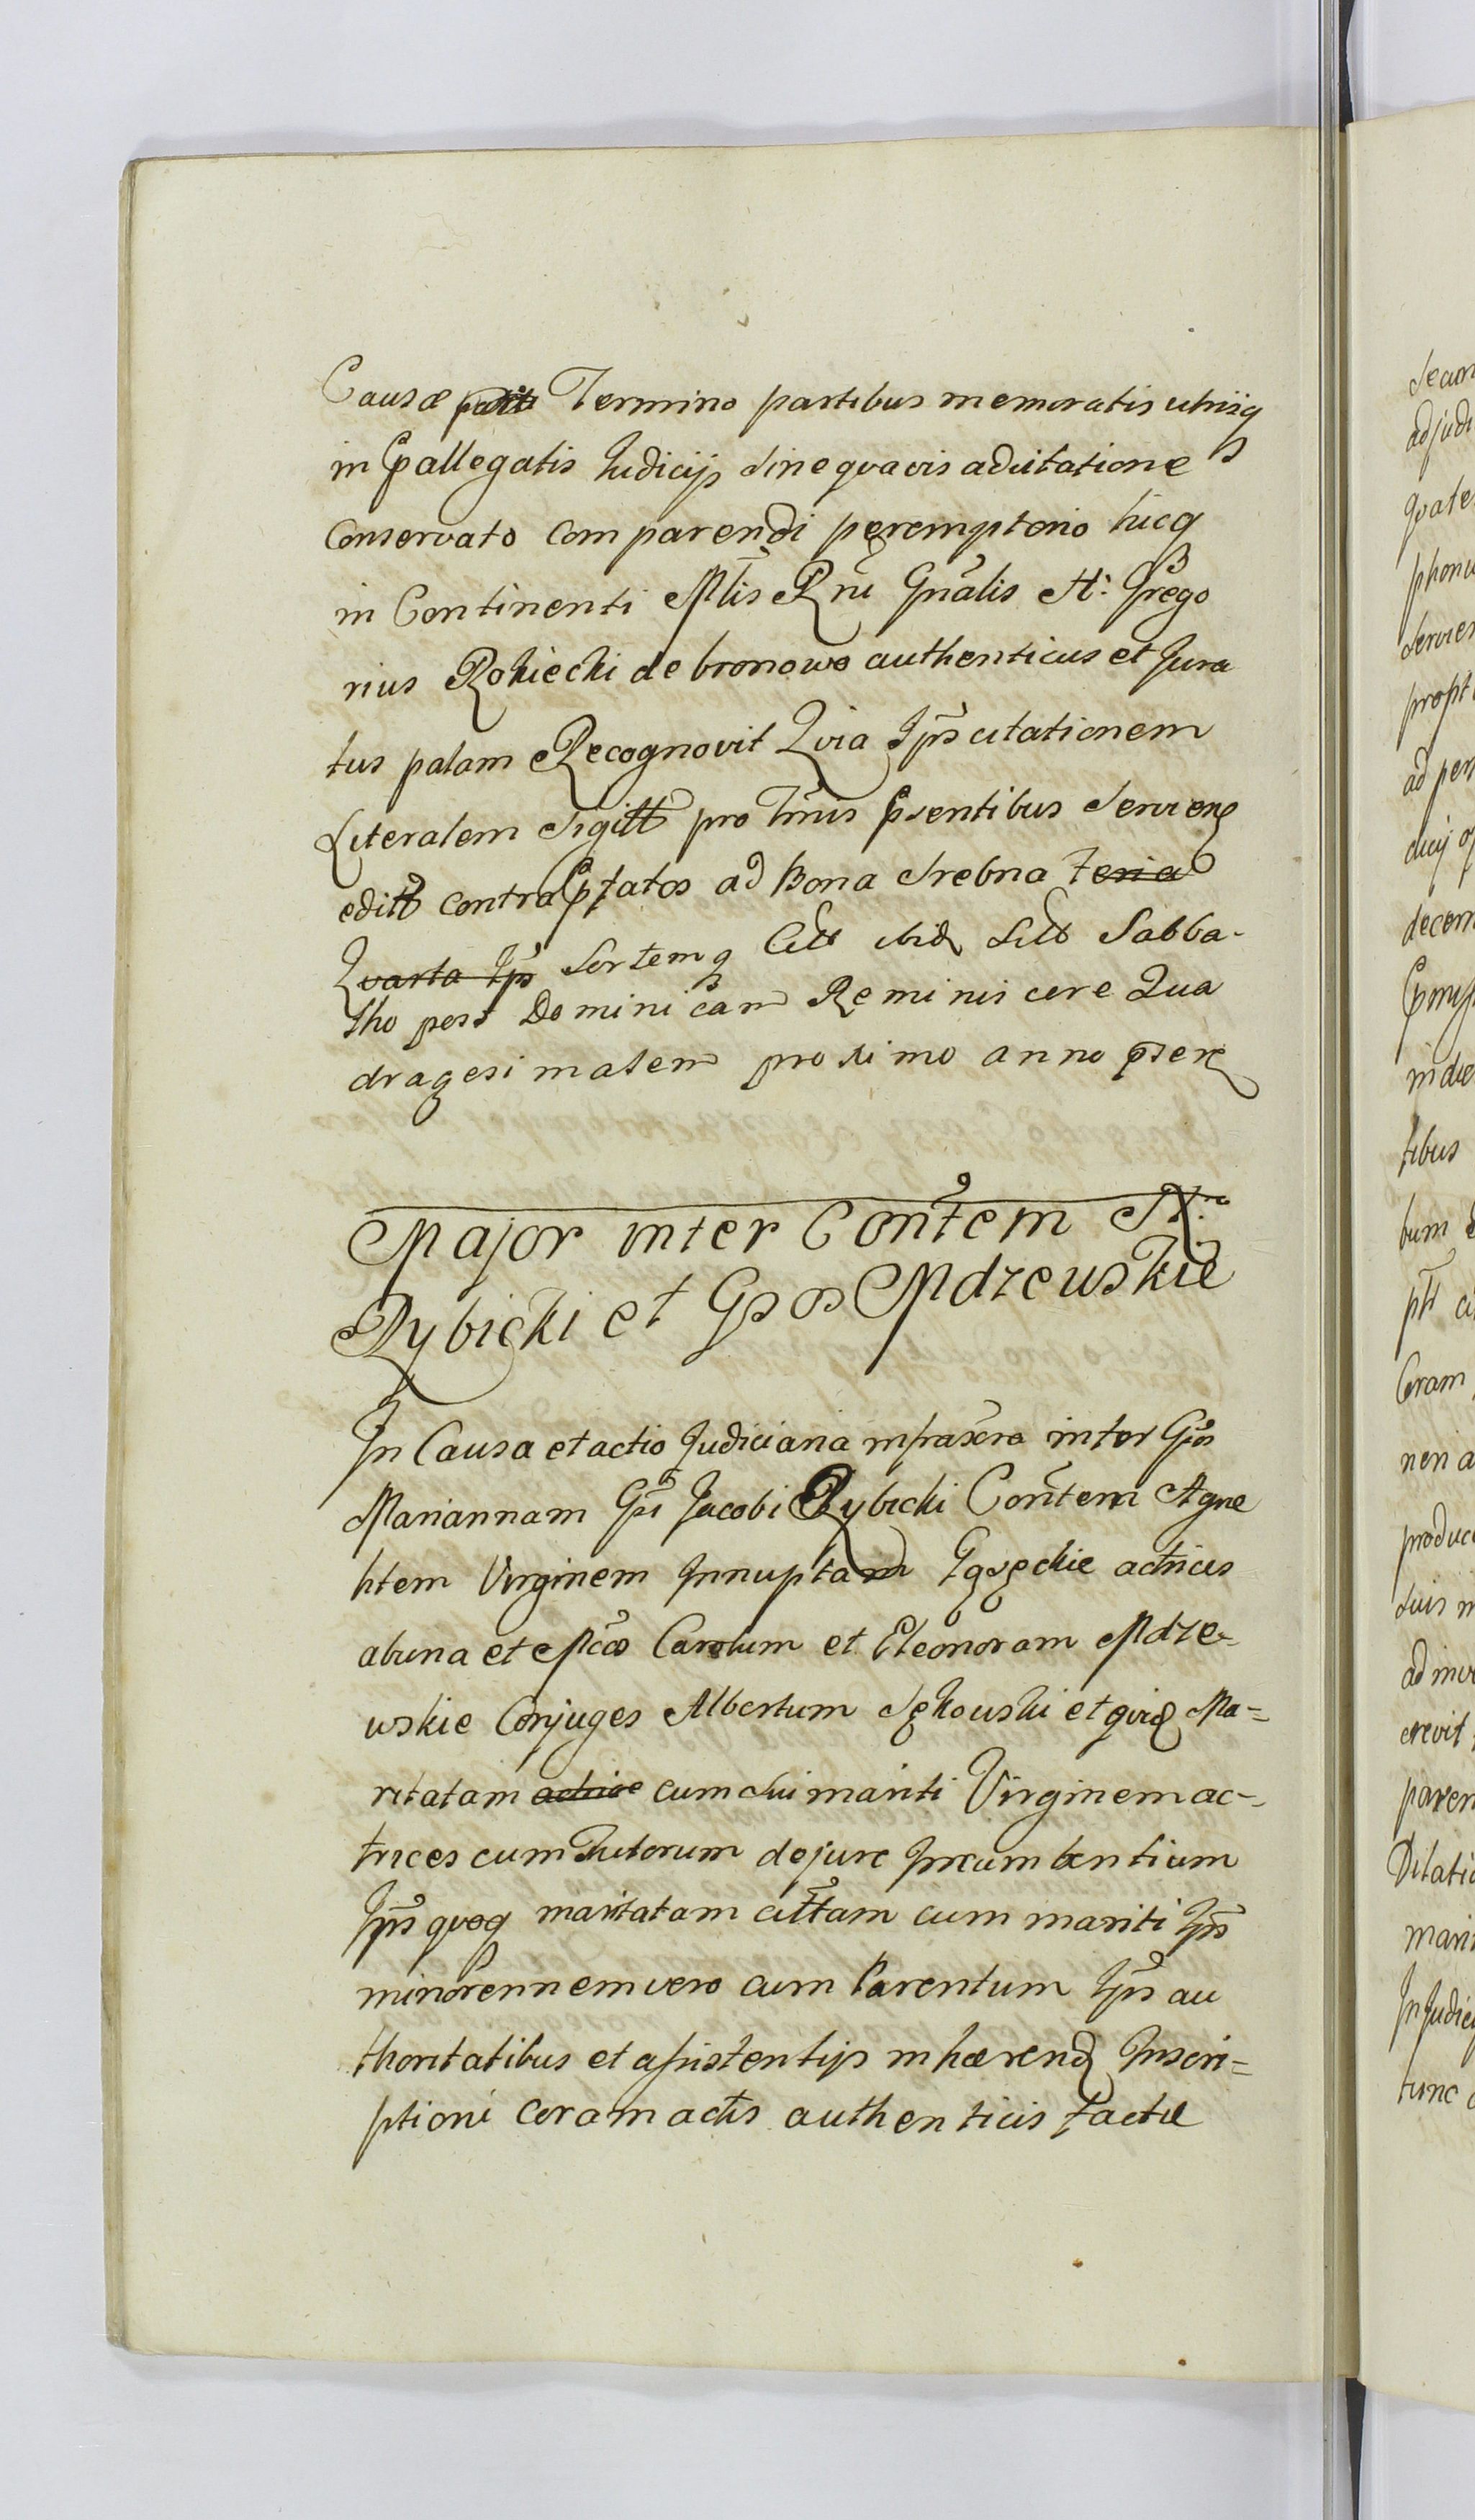 Causæ Termino partibus memoratis utrisq
in Ppallegatis Judicijs sine qvavis adcitatione
conservato comparendi peremptorio hicq
in Continenti Mtis Rni Gnalis H: Grego
rius Rokiecki de bronowo authenticus et Jura
tus palam Recognovit Qvia Ips citationem
Literalem Sigill pro Tmis psentibus Servien
editt contra Cptatos ad Bona Srebna feria
Qvarta Ips Sortemq ibid Sabba-
tho post Dominicam Reminiscere Qua
dragesimalem proximo anno psen
Major inter Contem N:
Rybicki et Gsos Mdzewskie
In Causa et actio Judiciaria infrascra inter Gsos
Mariannam Gsi Jacobi Rybicki Contem Agne
htem Virginem Innuptam actrices
abuna et Mcos Carolum et Eleonoram Mdze-
wskie Conjuges Albertum Sękowski et qvid Ma=
ritatam actrice cum sui mariti Virginem ac-
trices cum Tutorum de jure Incumbentium
Ips qvoq maritatam citttam cum mariti Ips
minorennem vero cum Parentum Ips au
thoritatibus et assistentijs inhærend Inscri=
ptioni coram actis authenticis factæ
Secun
adjudi
qvate
phonu
Servien
propt
ad per
dicij
decern
in die
tibus
bum
Coram
non a
produc
suis m
ad
crevit
paren
Dilati
mari
In Judicij
tunc